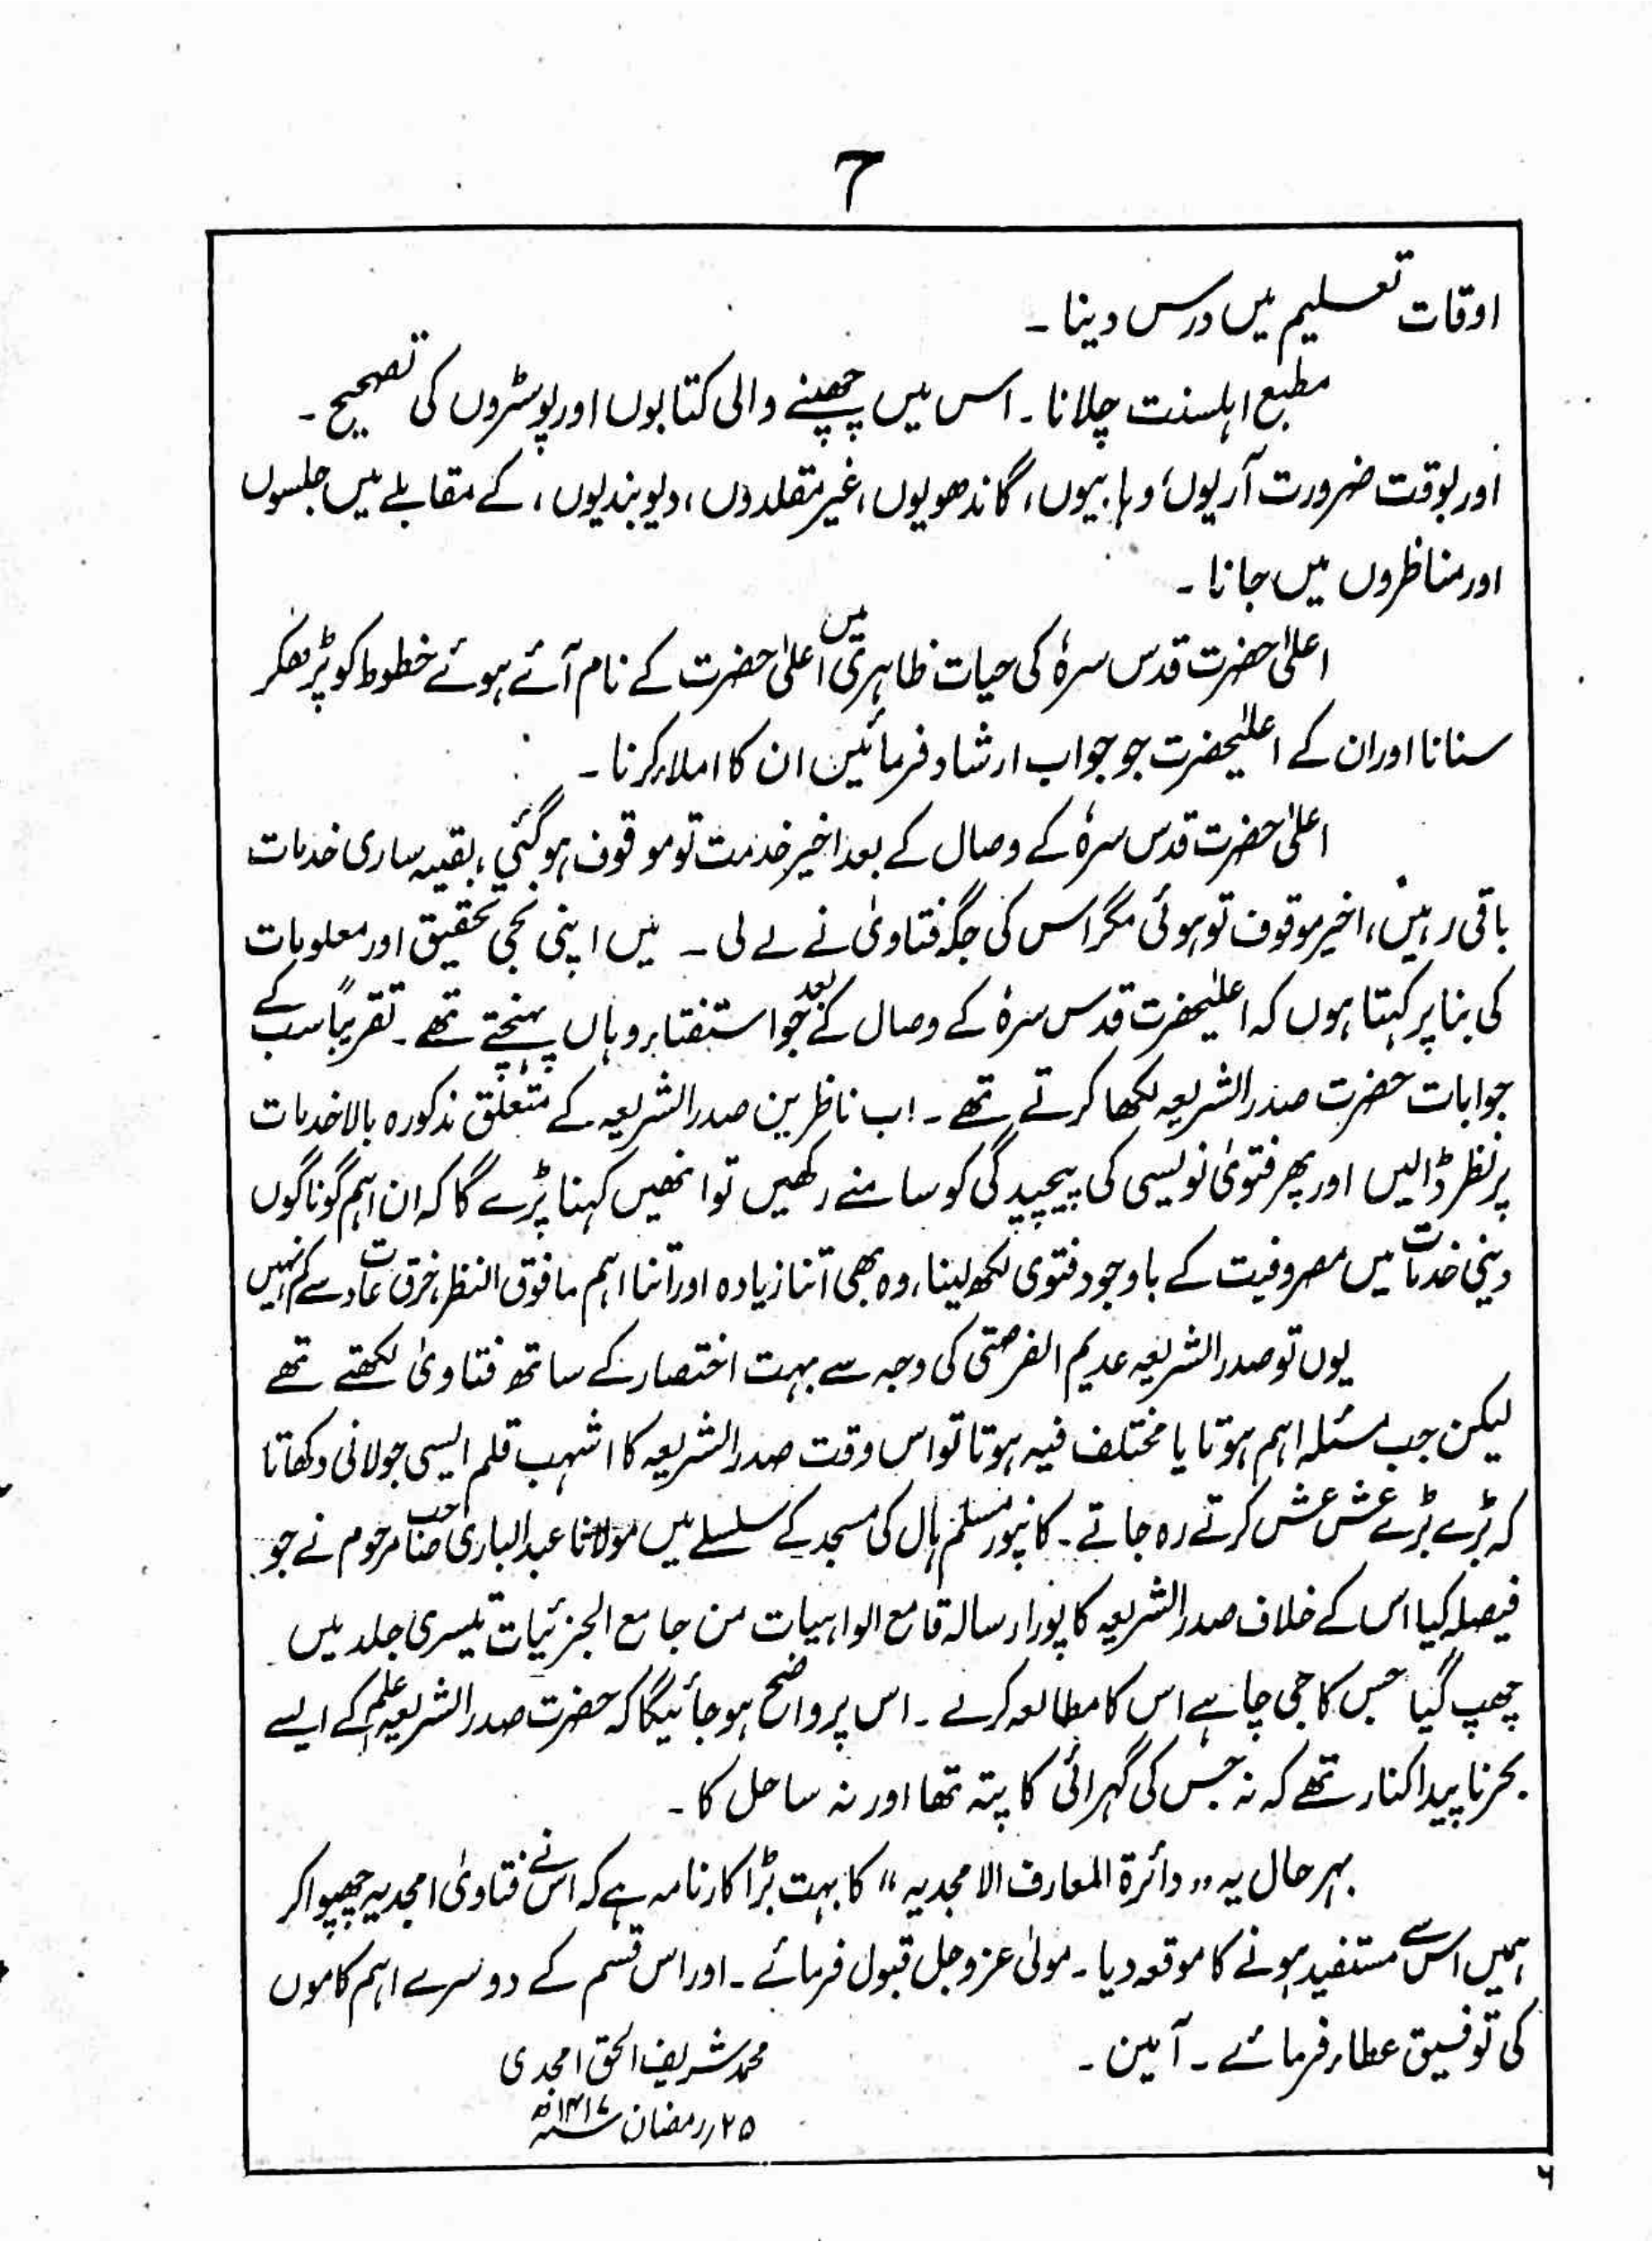 7
اوقات تعلیم میں درس دینا ۔
مطبع اہلسنت چلانا ۔ اس میں چھپنے والی کتابوں اور پوسٹروں کی تصحیح ۔
اور بوقت ضرورت آریوں، وہابیوں، گاندھویوں، غیر مقلدوں، دیوبندیوں، کے مقابلے میں جلسوں
اور مناظروں میں جانا ۔
اعلیٰ حضرت قدس سرہٗ کی حیات ظاہری میں اعلیٰ حضرت کے نام آئے ہوئے خطوط کو پڑھکر
سنانا اور ان کے اعلیٰحضرت جو جواب ارشاد فرمائیں ان کا املاء کرنا ۔
اعلیٰ حضرت قدس سرہٗ کے وصال کے بعد اخیر خدمت تو موقوف ہو گئی، بقیہ ساری خدمات
باقی رہیں، اخیر موقوف تو ہوئی مگر اس کی جگہ فتاویٰ نے لے لی ۔ میں اپنی نجی تحقیق اور معلومات
کی بنا پر کہتا ہوں کہ اعلیٰحضرت قدس سرہٗ کے وصال کے بعد جو استفتاء وہاں پہنچتے تھے ۔ تقریباً سب کے
جوابات حضرت صدرالشریعہ لکھا کرتے تھے ۔ اب ناظرین صدرالشریعہ کے متعلق مذکورہ بالا خدمات
پر نظر ڈالیں اور پھر فتویٰ نویسی کی پیچیدگی کو سامنے رکھیں تو انھیں کہنا پڑے گا کہ ان اہم گوناگوں
دینی خدمات میں مصروفیت کے باوجود فتوی لکھ لینا، وہ بھی اتنا زیادہ اور اتنا اہم مافوق النظر، خرق عادت سے کم نہیں
یوں تو صدرالشریعہ عدیم الفرصتی کی وجہ سے بہت اختصار کے ساتھ فتاویٰ لکھتے تھے
لیکن جب مسئلہ اہم ہوتا یا مختلف فیہ ہوتا تو اس وقت صدرالشریعہ کا اشہب قلم ایسی جولانی دکھاتا
کہ بڑے بڑے عش عش کرتے رہ جاتے ۔ کانپور مسلم ہال کی مسجد کے سلسلے میں مولانا عبدالباری صاحب مرحوم نے جو
فیصلہ کیا اس کے خلاف صدرالشریعہ کا پورا رسالہ قامع الواہیات من جامع الجزئیات تیسری جلد میں
چھپ گیا جس کا جی چاہے اس کا مطالعہ کرلے ۔ اس پر واضح ہو جائیگا کہ حضرت صدرالشریعہ علم کے ایسے
بحر ناپیدا کنار تھے کہ نہ جس کی گہرائی کا پتہ تھا اور نہ ساحل کا ۔
بہر حال یہ ,, دائرۃ المعارف الامجدیہ ،، کا بہت بڑا کارنامہ ہے کہ اس نے فتاویٰ امجدیہ چھپوا کر
ہمیں اس سے مستفید ہونے کا موقعہ دیا ۔ مولیٰ عزوجل قبول فرمائے ۔ اور اس قسم کے دوسرے اہم کاموں
کی توفیق عطاء فرمائے ۔ آمین ۔
محمد شریف الحق امجدی
۲۵؍ رمضان ۱۴۱۷ھ
۶